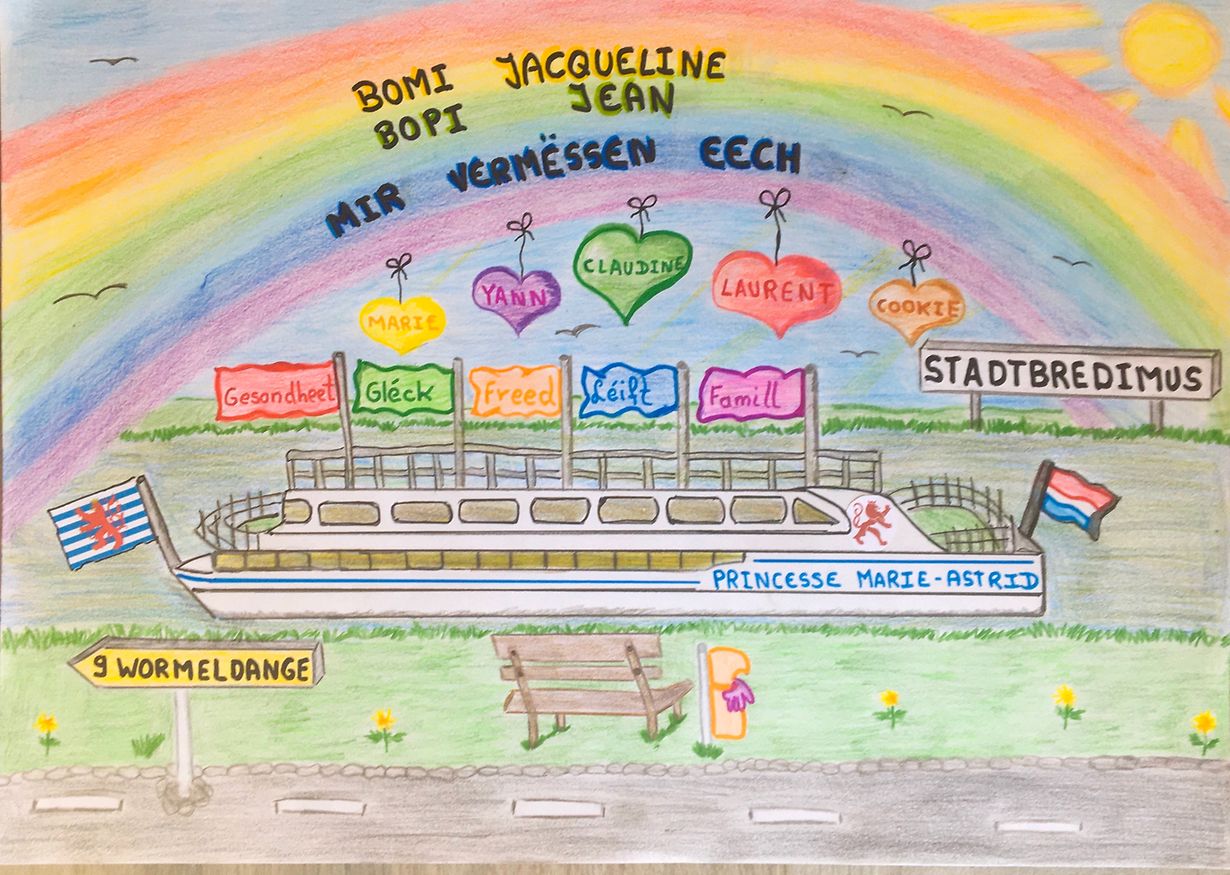 BOMI JACQUELINE
BOPI JEAN
MIR VERMËSSEN EECH
MARIE
YANN
CLAUDINE
LAURENT
COOKIE
Gesondheet
Gléck
Freed
Léift
Famill
STADTBREDIMUS
PRINCESSE MARIE-ASTRID
9 WORMELDANGE